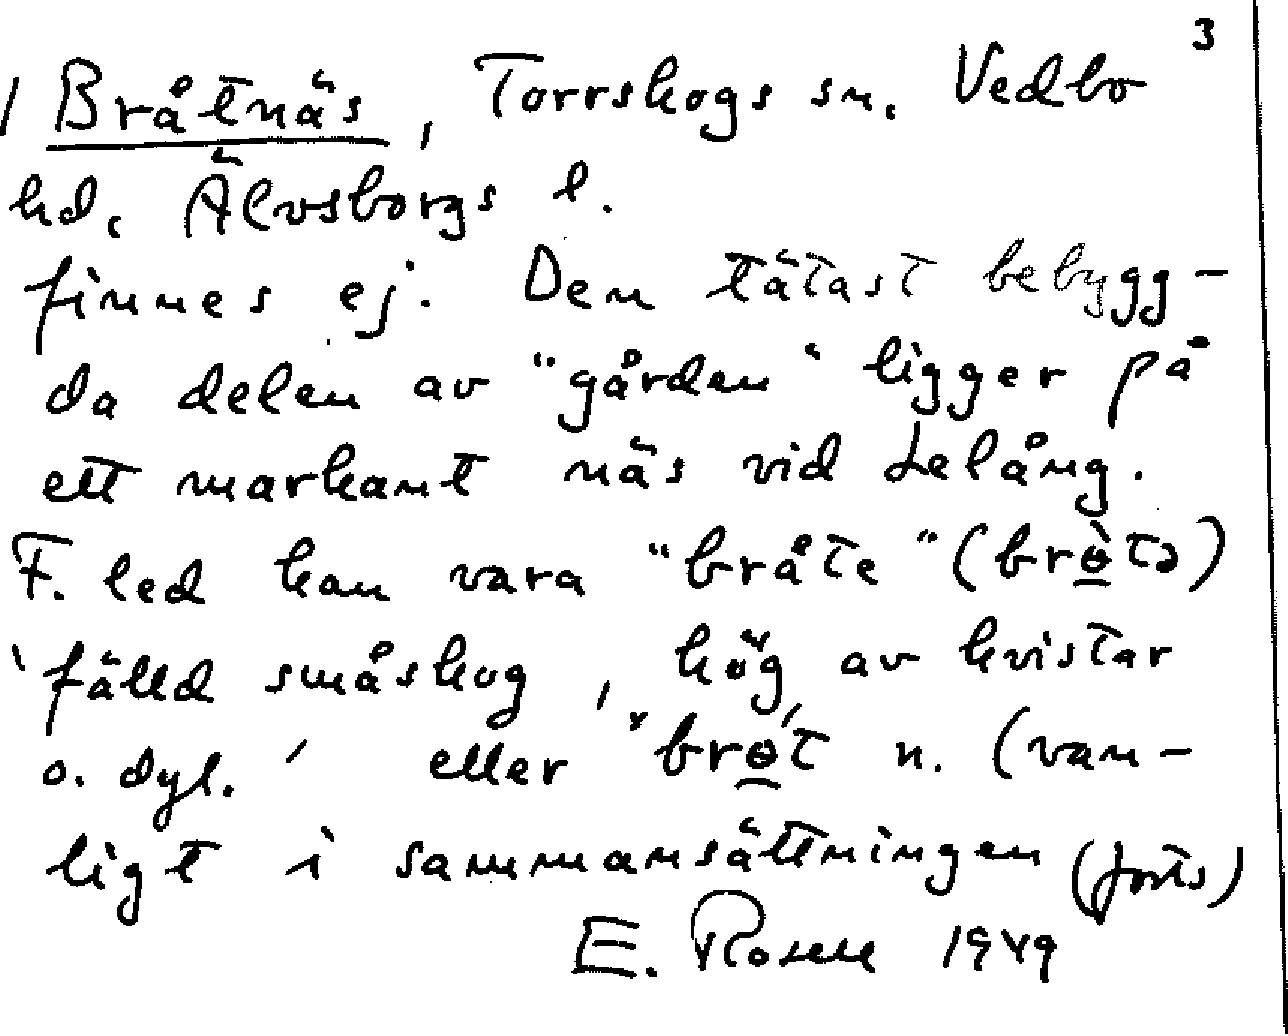 3
/ Bråtnäs, Torrskogs sn. Vedbo
hd. Älvsborgs l.
finnes ej. Den tätast bebygg-
da delen av "gården" ligger på
ett markant näs vid Lelång.
F. led kan vara "bråte" (brɵ̀tə)
'fälld småskog, hög av kvistar
o. dyl.' eller "brɵ́t n. (van-
ligt i sammansättningen (forts)
E. Rosell 1949